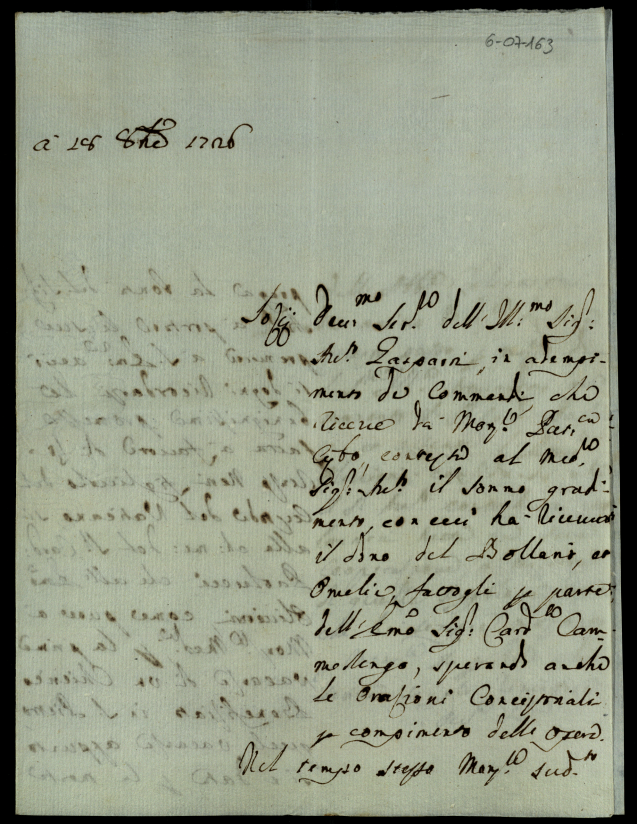 6-07-163
à 18 8bre 1726
devmo Serre dell' Illmo Sigr
Abe Gasparri, in adempi-
mento de Commandi, che
riceve da Monre Patrca
Cybo, contesta al medmo
Sigr Abe il sommo gradi-
mento, con cui ha ricevuto
il dono del Bollario, et
Omelie, fattogli p parte
dell' Emo Sigr Card Cam-
merlengo, sperando anche
le Orazioni Concistoriali
p compimento delle opere.
Nel tempo stesso Monre sudto